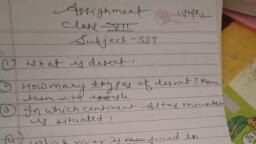 Assignment
Class - VII
Subject - SST
(1) What is desert!
(2) How many types of desert? 
them with example
(3) In which continent Atlas mountain
is situated!
(4) Which river is found in